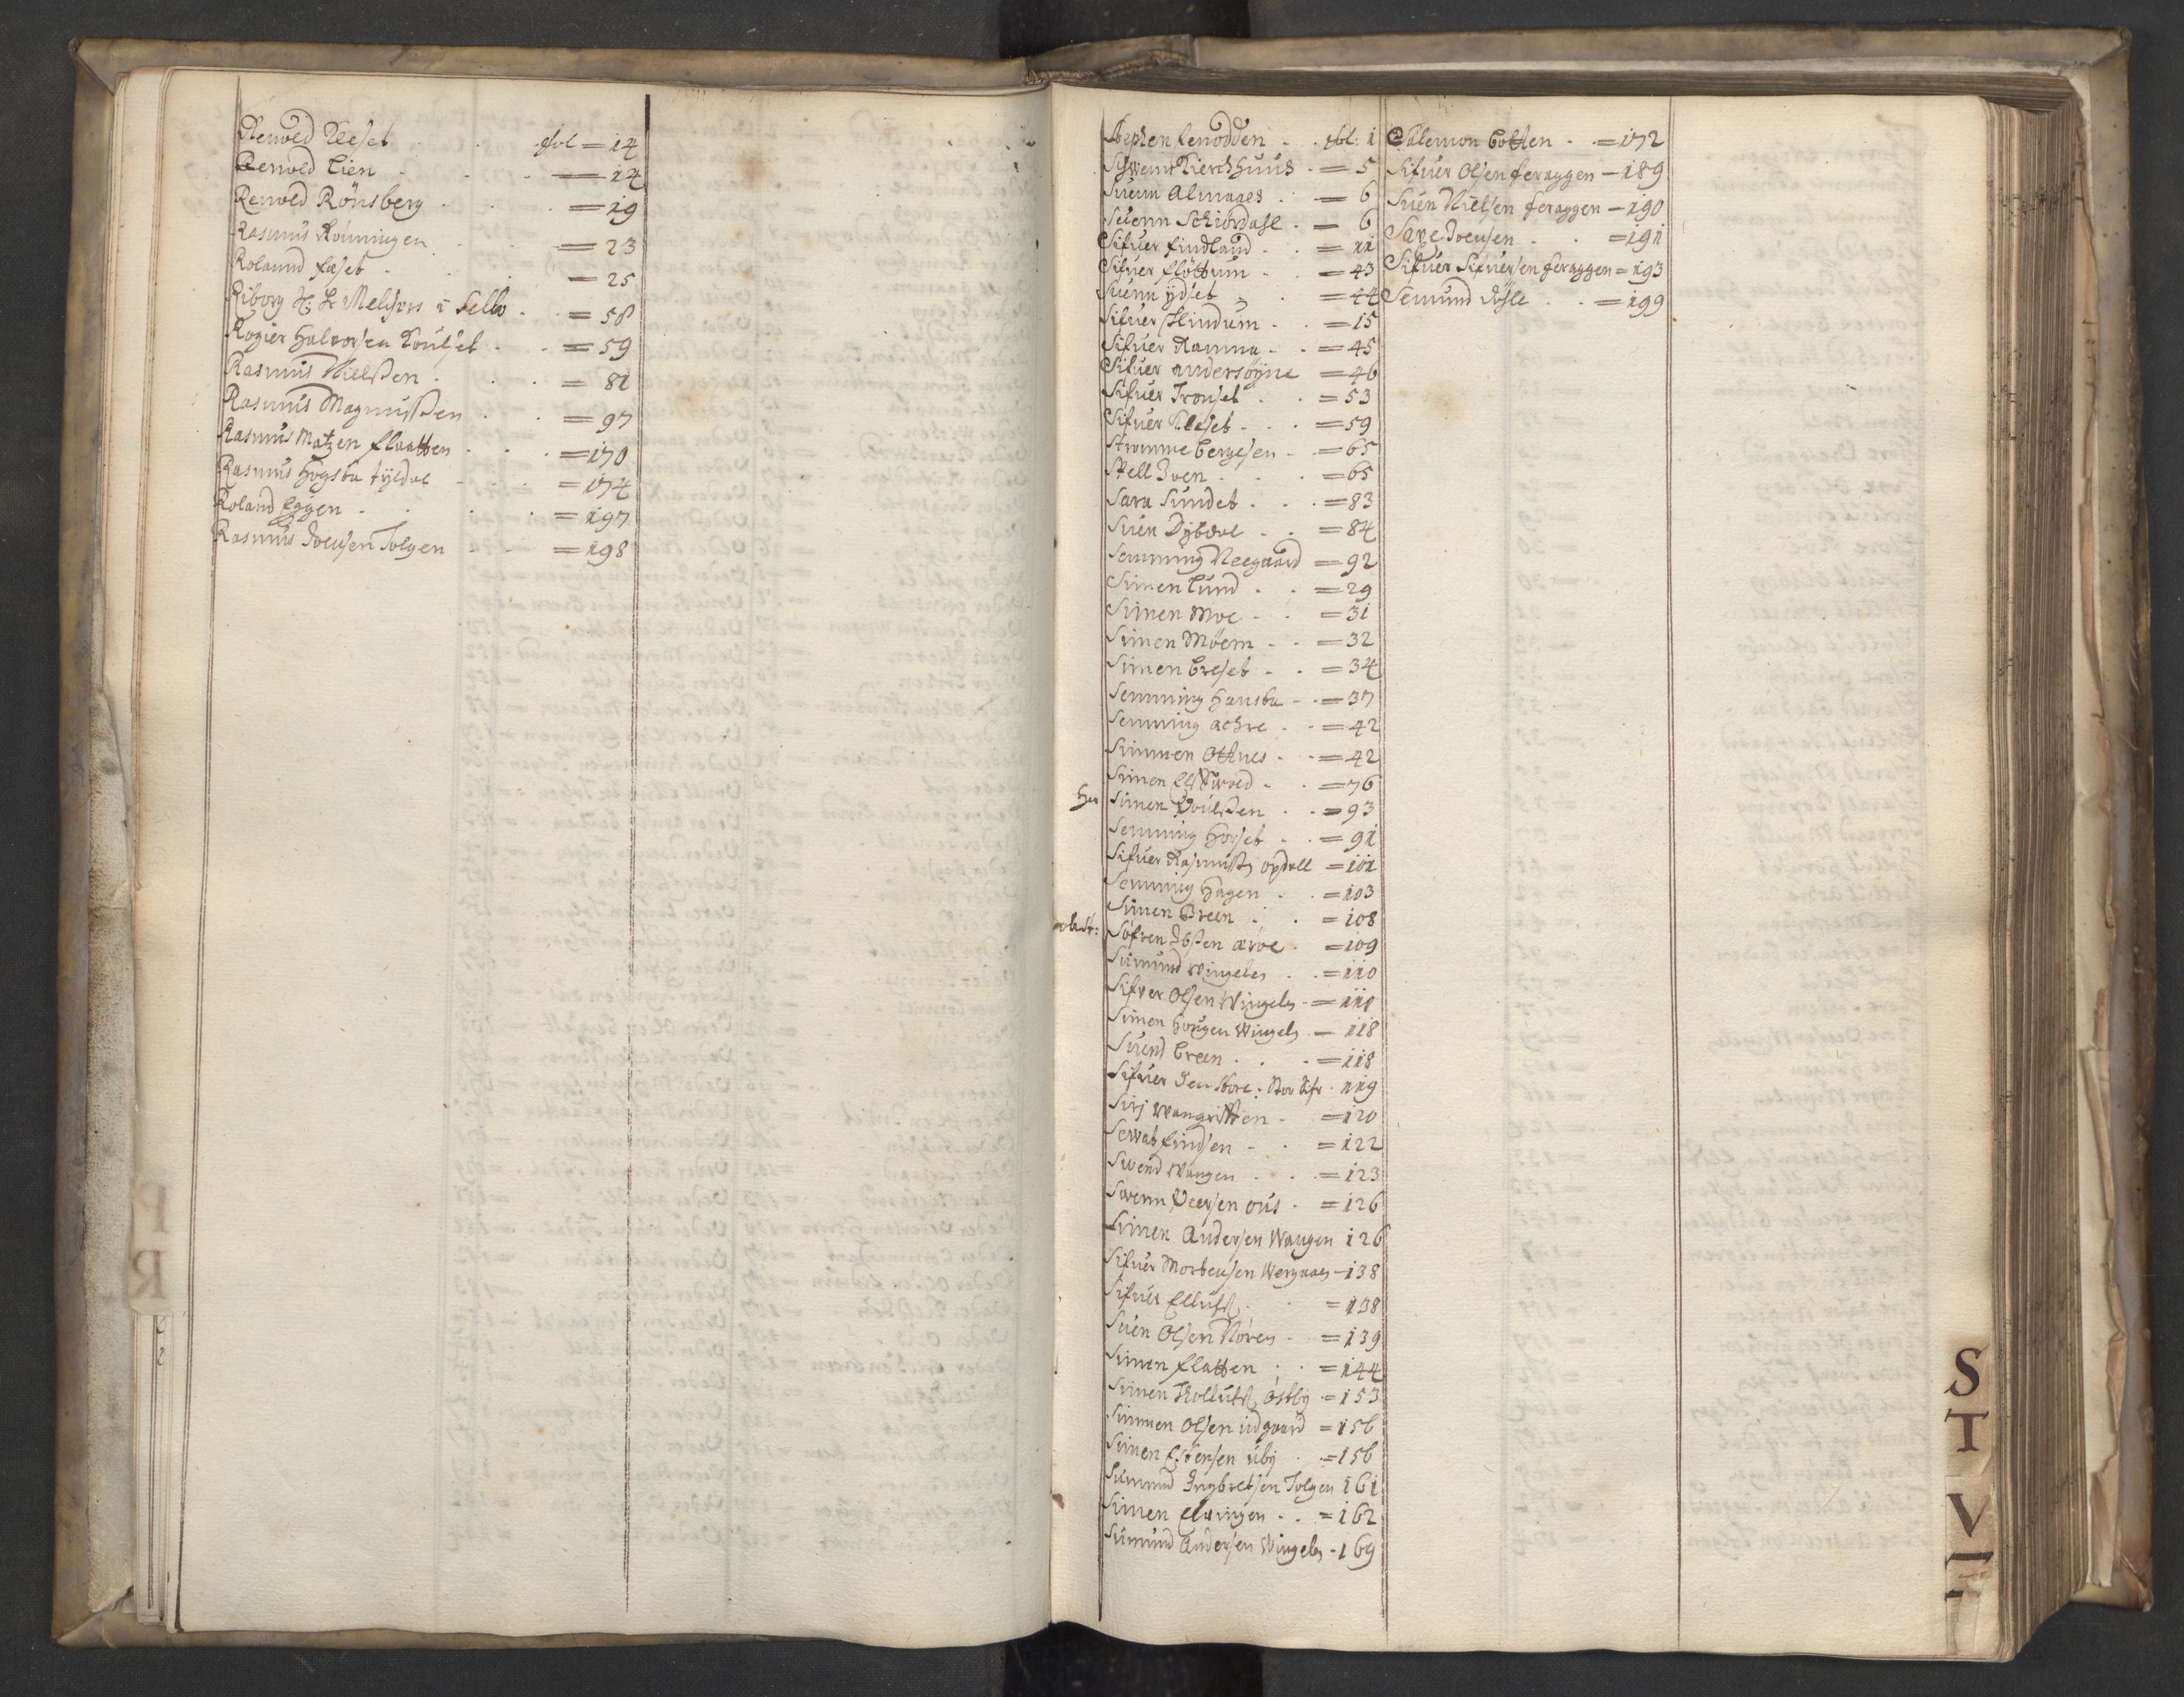 Renold Kleset . . fol = 14
Renold Lien . . = 14
Renold Rönsberg . . = 19
Rasmus Rönningen . = 23
Rolannd faset . . = 25
Riborg Melchers i Selbo . . = 58
Rogier Halvorsen . . = 59
Rasmus Nielssen . . . = 81
Rasmus Magnussen . . = 97
Rasmus Matzen flaatten . . = 170
Rasmus Hogsta tyldal . . = 174
Roland Eggen . . . = 197
Rasmus Joensen Tolgen . = 198
Stephen fenodden . . fol: 1
Schwenn Kierchhuus . = 5
Suenn Almaaes . = 6
Suenn Schiordahl . = 6
Sifuer findland . . = 11
Sifuer flöttum . = 43
Suenn ydset . = 44
Sifuer Hindum . . = 15
Sifuer Ramma . . = 45
Sifuer andersøyne = 46
Sifuer Tronset . . = 53
Sifuer Kleset . . . = 59
Stromme bergesen . = 65
Skell Joen . . . = 65
Sara Sundet . . . = 83
Suen Dybdal . . = 84
Semming Neegaard = 92
Simen Lund . . = 29
Simen Moe . . = 31
Simen Möem . . = 32
Simen breset . . = 34
Semming Hansta . . = 37
Semming achre . . = 42
Simmen Ottnes . . = 42
Simen . . = 76
Her Simen Poulssen . . = 93
Semming Horset . . = 91
Sifuer Rasmuss opdall = 101
Semming Hagen . . = 103
Simen Breen . . = 108
Søfren Ibsen . = 109
Simund Wingelen . . = 110
Sifver Olsen Wingeln . = 110
Simen Hougen Wingeln . = 118
Suend breen . . . = 118
Sifuer . 119
Siri Wangrötten . = 120
Sewat findsen . . = 122
Swend Wangen . . . = 123
Swenn Peersen ous . = 126
Simen Andersen Wangen 126
Sifuer Mortensen = 138
Sifuer Ellufs . . = 138
Suen Olsen Nören . = 139
Simen flatten . . = 144
Simen Rollufs östby = 153
Simmen Olsen udgaard = 156
Simen Estensen uby . = 156
Simund Ingbretsen Tolgen 161
Simen Elvingen . . = 162
Simund Andersen Wingeln - 169
Salemon botten . . = 172
Sifuer Olsen feraggen = 189
Suen Nielsen feraggen = 190
Save Joensen . . = 191
Sifuer Sifuersen feraggen = 193
Semund . . = 199
P
R
S
T
V